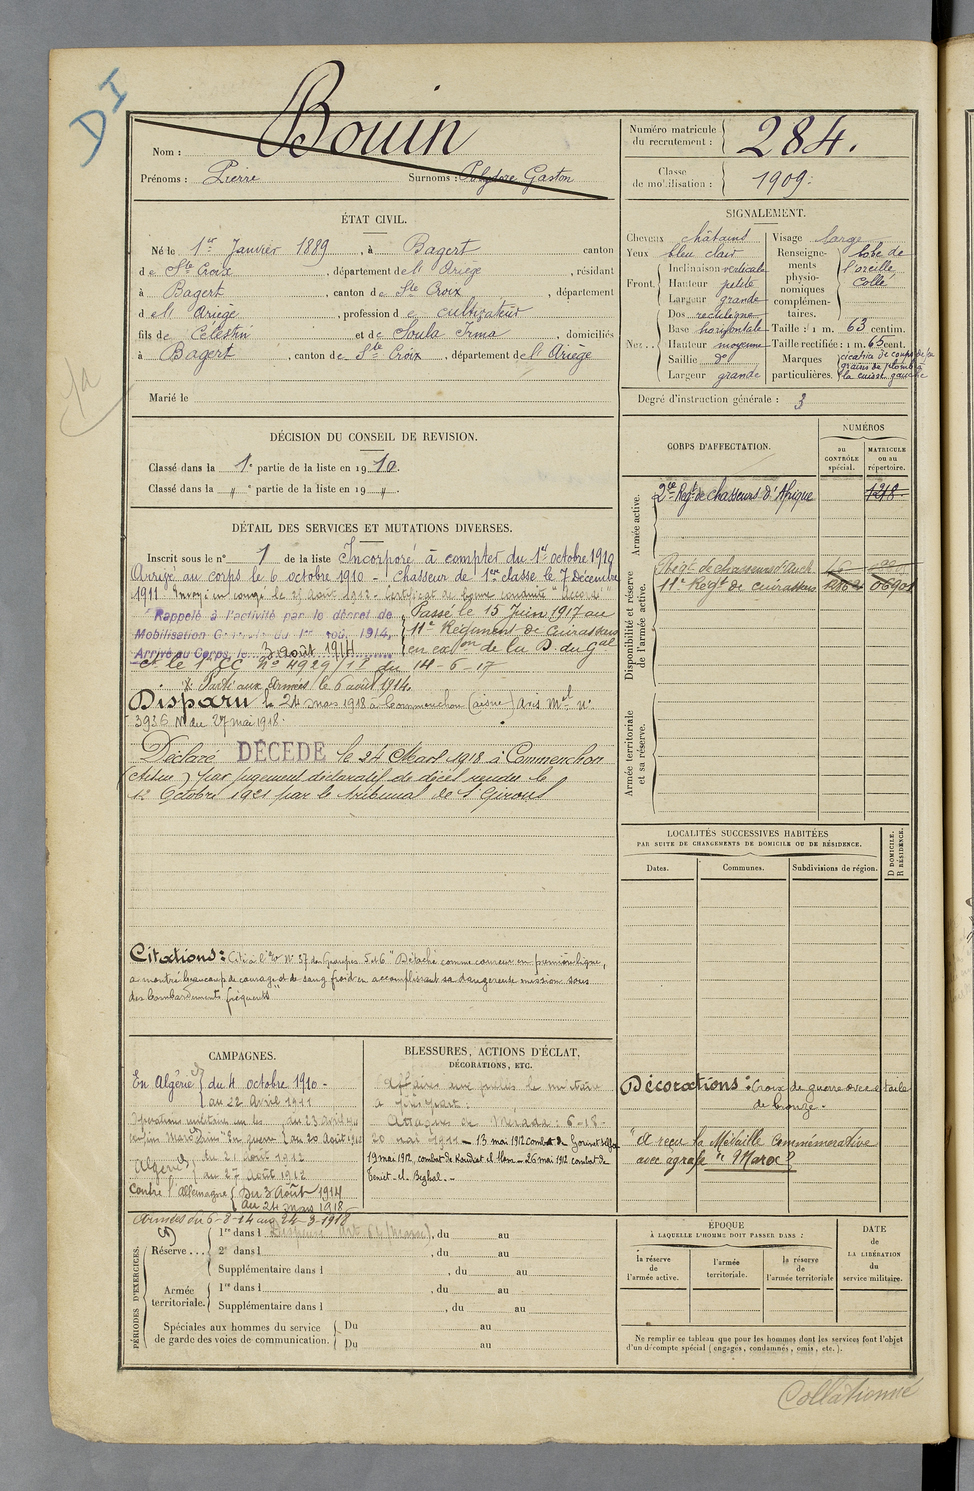 DI
Nom : Bouin
Prénoms : Pierre Surnoms : Polydore Gaston
Numéro matricule du recrutement : 284.
Classe de mobilisation : 1909.
ÉTAT CIVIL.
Né le 1er Janvier 1889, à Bagert canton
de Ste Croix, département de l' Ariège, résidant
à Bagert, canton de Ste Croix, département
de l' Ariège, profession de cultivateur
fils de Célestin et de Soula Irma domiciliés
à Bagert, canton de Ste Croix, département de l' Ariège
Marié le
SIGNALEMENT.
Cheveux châtains
Yeux bleu clair
Front. Inclinaison verticale
Hauteur petite
Largeur grande
Nez.. Dos rectiligne
Base horizontale
Hauteur moyenne
Saillie do
Largeur grande
Visage large
Renseignements physionomiques complémentaires. lobe de l'oreille collé
Taille : 1 m. 63 centim.
Taille rectifiée : 1 m. 65 cent.
Marques particulières. cicatrice de coups de
grains de plomb à
la cuisse gauche
Degré d'instruction générale : 3
DÉCISION DU CONSEIL DE REVISION.
Classé dans la 1e partie de la liste en 1910.
Classé dans la " e partie de la liste en 19 ".
CORPS D'AFFECTATION.
NUMÉROS
au CONTRÔLE spécial.
MATRICULE ou au répertoire.
Armée active.
2e Régt de chasseurs d'Afrique 1218.
Disponibilité et réserve de l'armée active.
Régt de chasseurs d'Auch
11e Régt de cuirassiers 06901
Armée territoriale et sa réserve.
DÉTAIL DES SERVICES ET MUTATIONS DIVERSES.
Inscrit sous le n° 1 de la liste Incorporé à compter du 1er octobre 1910
Arrivé au corps le 6 octobre 1910 - Chasseur de 1ère classe le 7 Décembre
1911 Envoyé en congé le 27 Août 1912. Certificat de bonne conduite "Accordé"
Rappelé à l'activité par le décret de
Mobilisation Générale du 1er Août 1914,
Arrivé au Corps, le 3 août 1914
Passé le 15 Juin 1917 au
11e Régiment de Cuirassiers
en exon de la D. du Gal
Ct le 1er CC No 4929/11 du 14-6-17
Parti aux Armées le 6 août 1914.
Disparu le 24 mars 1918 à Commenchon (aisne) avis Mel n°
3936 N du 27 mai 1918.
Déclaré DÉCÉDÉ le 24 Mars 1918 à Commenchon
(Aisne) par jugement déclaratif de décès rendu le
12 Octobre 1921 par le tribunal de St Girons
LOCALITÉS SUCCESSIVES HABITÉES
PAR SUITE DE CHANGEMENTS DE DOMICILE OU DE RÉSIDENCE.
Dates.
Communes.
Subdivisions de région.
D DOMICILE. R RÉSIDENCE.
Citations : Cité à l'O No 37 des Groupes 5 et 6 "Détaché comme coureur en première ligne,
a montré beaucoup de courage et de sang froid en accomplissant sa dangereuse mission sous
des bombardements fréquents"
CAMPAGNES.
En Algérie du 4 octobre 1910 -
au 22 Avril 1911
Opérations militaires du 23 avril 1911
"En guerre" au 20 Août 1912
Algérie du 21 août 1912
au 27 Août 1912
Contre l'Allemagne Du 3 Août 1914
au 24 mars 1918
Armées du 6-8-14 au 24-3-1918
BLESSURES, ACTIONS D'ÉCLAT,
DÉCORATIONS, ETC.
Affaires aux quelles le militaire
a pris part :
Attaques de Mérada : 6-18-
20 mai 1911 - 13 mai 1912 combat de
19 mai 1912, combat de Koudiat el - 26 mai 1912 combat de
Teniet-el-Beghal.-
Décorations : Croix de guerre avec étoile
de bronze.
"A reçu la Médaille Commémorative
avec agrafe "Maroc"
PÉRIODES D'EXERCICES.
Réserve... 1re dans l Dispensé art. 64 , du au
2e dans l , du au
Supplémentaire dans l , du au
Armée territoriale. 1re dans l , du au
Supplémentaire dans l , du au
Spéciales aux hommes du service de garde des voies de communication. Du au
Du au
ÉPOQUE
À LAQUELLE L'HOMME DOIT PASSER DANS :
la réserve de l'armée active.
l'armée territoriale.
la réserve de l'armée territoriale
DATE DE LA LIBÉRATION du service militaire.
Ne remplir ce tableau que pour les hommes dont les services font l'objet
d'un décompte spécial (engagés, condamnés, omis, etc.).
Collationné